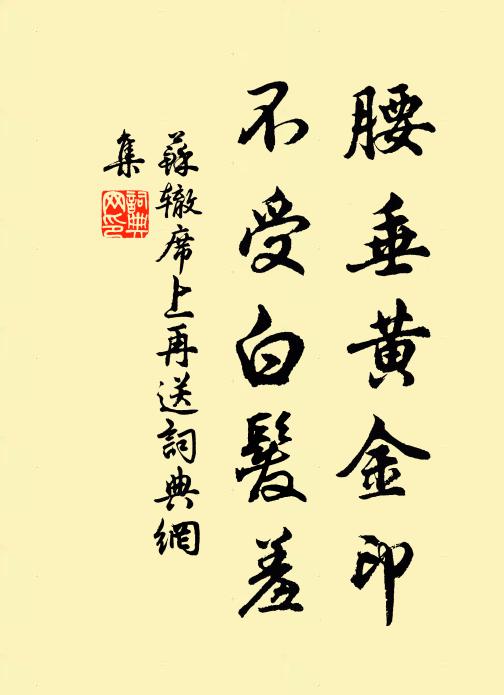 腰垂黄金印
不受白髮羞
蘇轍席上再送詞典網
集
詞典
网印